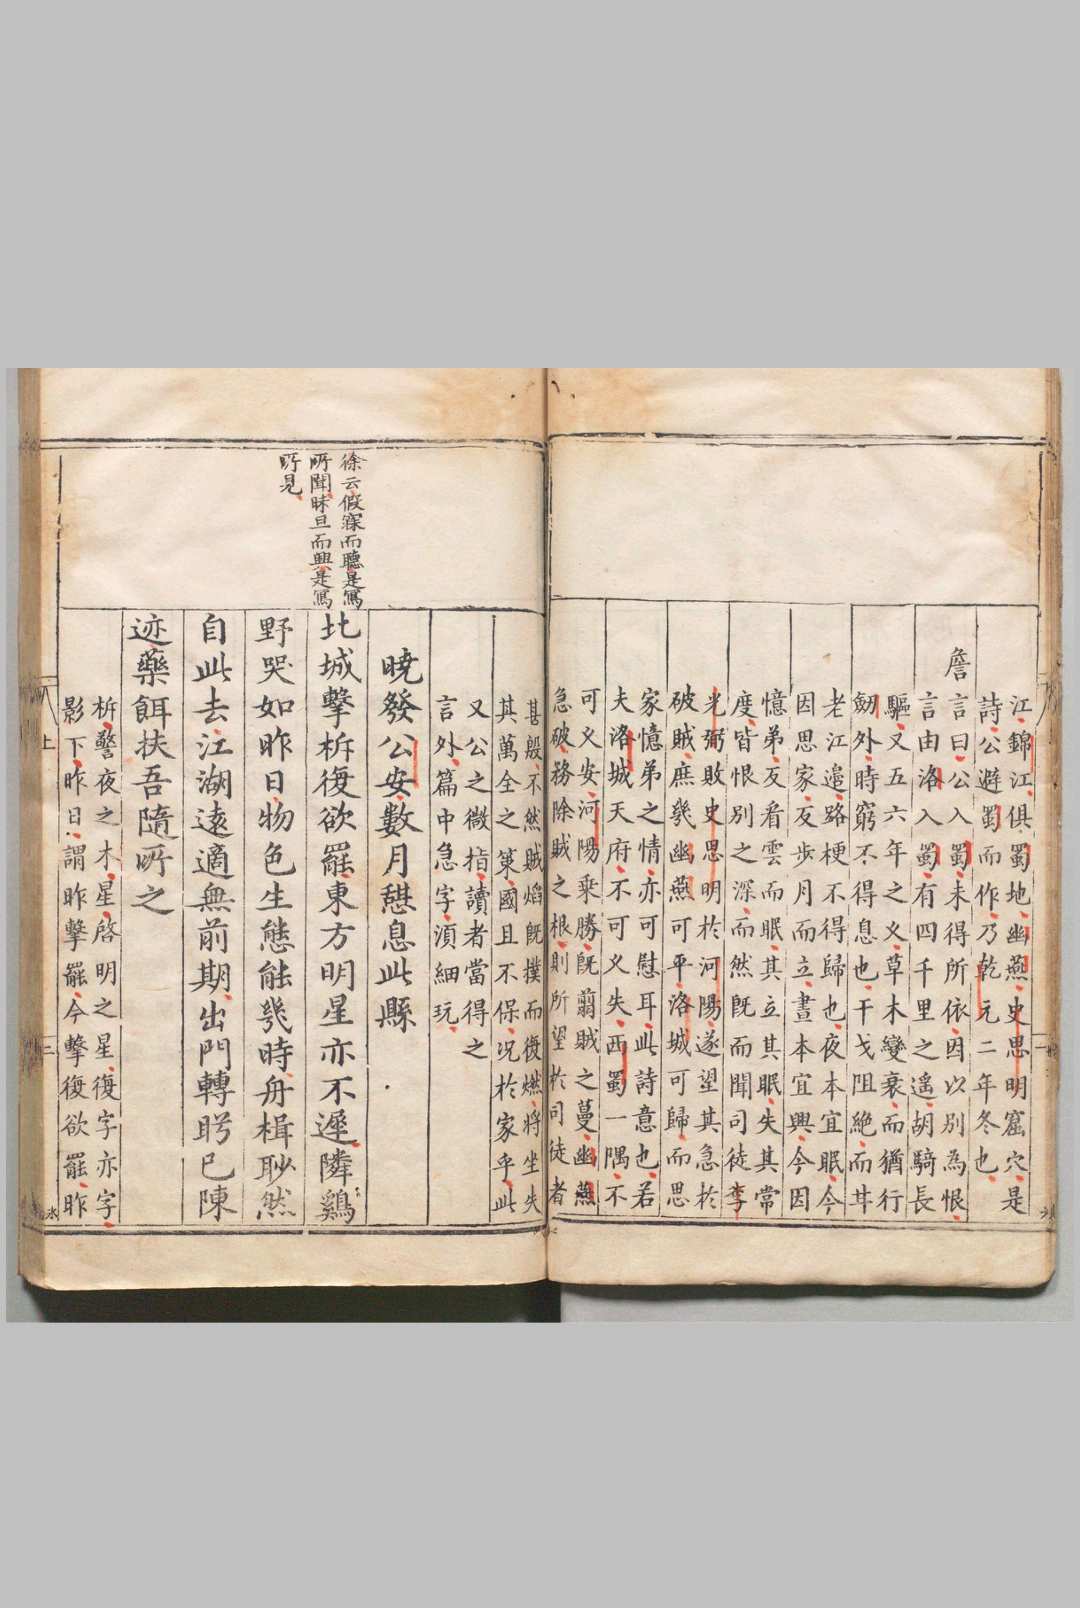 江錦江俱蜀地幽燕史思明窟穴是
詩公避蜀而作乃乾元二年冬也
詹言曰公入蜀未得所依因以別為恨
言由洛入蜀有四千里之遙胡騎長
驅又五六年之乂草木變衰而猶行
劒外時窮不得息也干戈阻絶而廿
老江邉路梗不得歸也夜本宜眠今
因思家反步月而立晝本宜興今因
憶弟反看雲而眠其立其眠失其常
度皆恨別之深而然旣而聞司徒李
光弼敗史思明於河陽遂望其急於
破賊庶幾幽燕可平洛城可歸而思
家憶弟之情亦可慰耳此詩意也若
夫洛城天府不可乂失西蜀一隅不
可乂安河陽乗勝旣翦賊之蔓幽燕
急破務除賊之根則所望於司徒者
甚殷不然賊熖旣撲而復燃將坐失
其萬全之䇿國且不保况於家乎此
又公之微指讀者當得之
言外篇中急字須細玩
暁發公安數月憇息此縣
北城擊柝復欲罷東方明星亦不遲隣鷄
野哭如昨日物色生態能幾時舟楫眇然
自此去江湖遠適無前期出門轉眄已陳
迹藥餌扶吾隨所之
徐云假寐而聽是寫
所聞昧旦而興是寫
所見
柝警夜之木星啓明之星復字亦字
影下昨日謂昨擊罷今擊復欲罷昨
八上
三